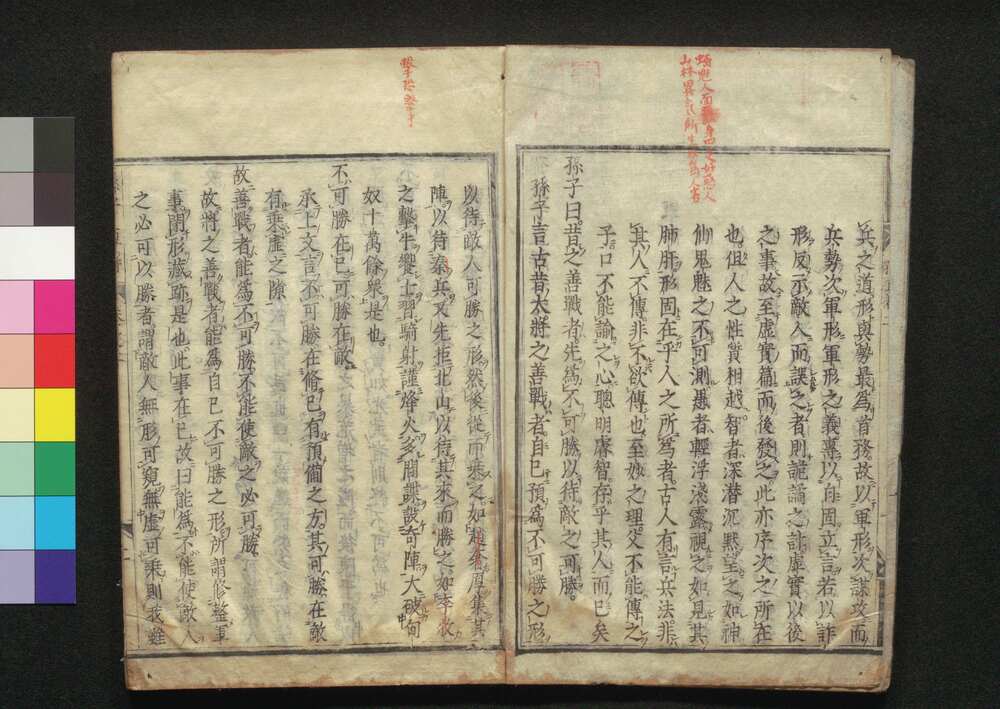 兵之道形與勢最爲首務故以軍形次謀攻而
兵勢次軍形軍形之義專以自固立言若以詐
形反示敵人而誤之者則詭譎之計虛實以後
之事故至虛實篇而後發之此亦序次之所在
也但人之性質相越智者深潜沉默望之如神
仙鬼魅之不可測愚者輕浮淺露視之如見其
肺肝形固在乎人之所爲者古人有言兵法非
其人不傳非不欲傳也至妙之理父不能傳之
子口不能諭之心聰明睿智存乎其人而已矣
孫子曰昔之善戰者先爲不可勝以待敵之可勝
孫子言古昔大將之善戰者自己預爲不可勝之形
以待敵人可勝之形然後從而乘之如趙奢厚集其
陣以待秦兵又先拒北山以待其來而勝之如李牧
之擊牛饗士習騎射謹烽火多間諜設奇陣大破匈
奴十萬餘衆是也
不可勝在己可勝在敵
承上文言不可勝在脩己有預備之方其可勝在敵
有乘虛之隙
故善戰者能爲不可勝不能使敵之必可勝
故將之善戰者能爲自己不可勝之形所謂修整軍
事閉形藏跡是也此事在己故曰能爲不能使敵人
之必可以勝者謂敵人無形可窺無虛可乘則我雖